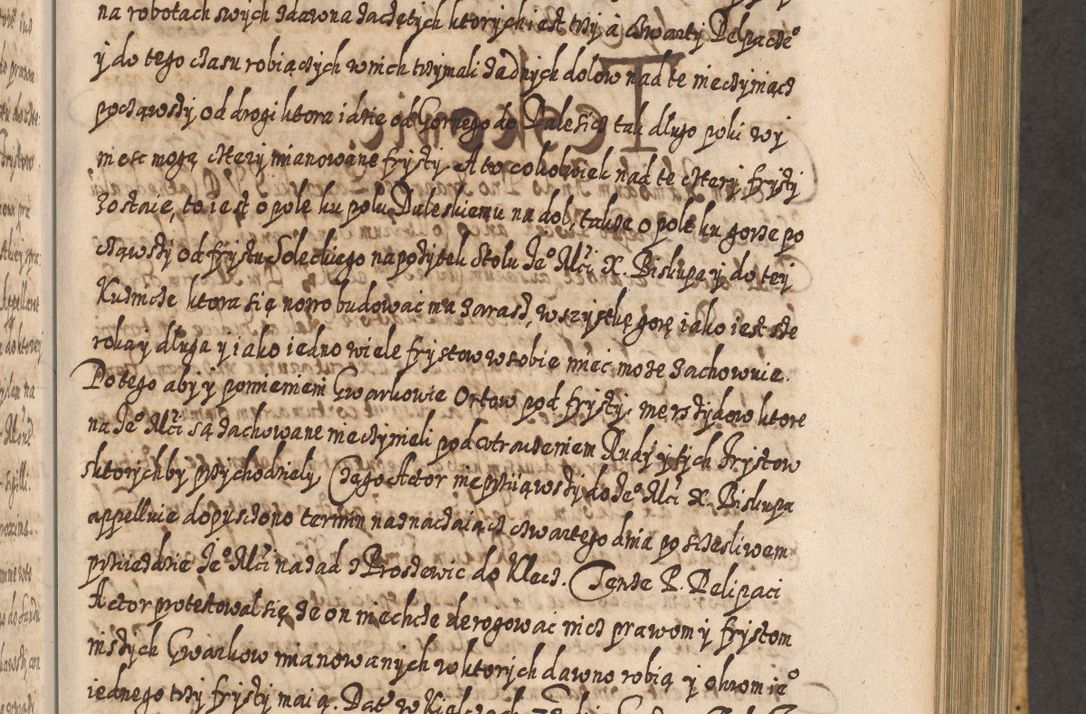 na robotach swych zdawna zaczętych ktorych iest trzy a czwarty Delpacze°
y do tego czasu robiączych w nich trzymali zadnych dołow nad te nieczyniącz
począwszy od drogi ktora idzie od Gornego do Dalesicz tak długo poki wy
niesc mogą cztery mianowane frysty. A to cokolwiek nad te cztery frysty
zostaie, to iest o pole ku polu Daleskiemu na doł, takze o pole ku gorze po
cząwszy od frystu Soleckiego na pozytek stołu Je° Mci X. Biskupa y do tey
Kuznicze ktora się nowo budowac ma zarazd, wszystkę gorę iako iest sze
roka y długa y iako iedno wiele frystow w sobie miec moze zachowuie.
Do tego aby y pomienieni Gwarkowie Ortow pod frysty, merszydow ktore
na Je° Mci są zachowane nieczynieli pod utraczeniem Rudy y tych Frystow
s ktorychby przychodzieły, Czego Actor nieprzyiąwszy do Je° Mci X. Biskupa
appelluie dopusczono termin naznaczaiącz czwartego dnia po sczesliwem
przieździe Je° Mci nazad z Proszewic do Kielcz. Tenze P. Delipaci
Actor protestował się ze on niechcze derogowac nicz prawom y frystom
inszych Gwarkow mianowanych w ktorych dawno robią y okrom ie°
iednego trzy frysty maią. Dat° w Kielczach